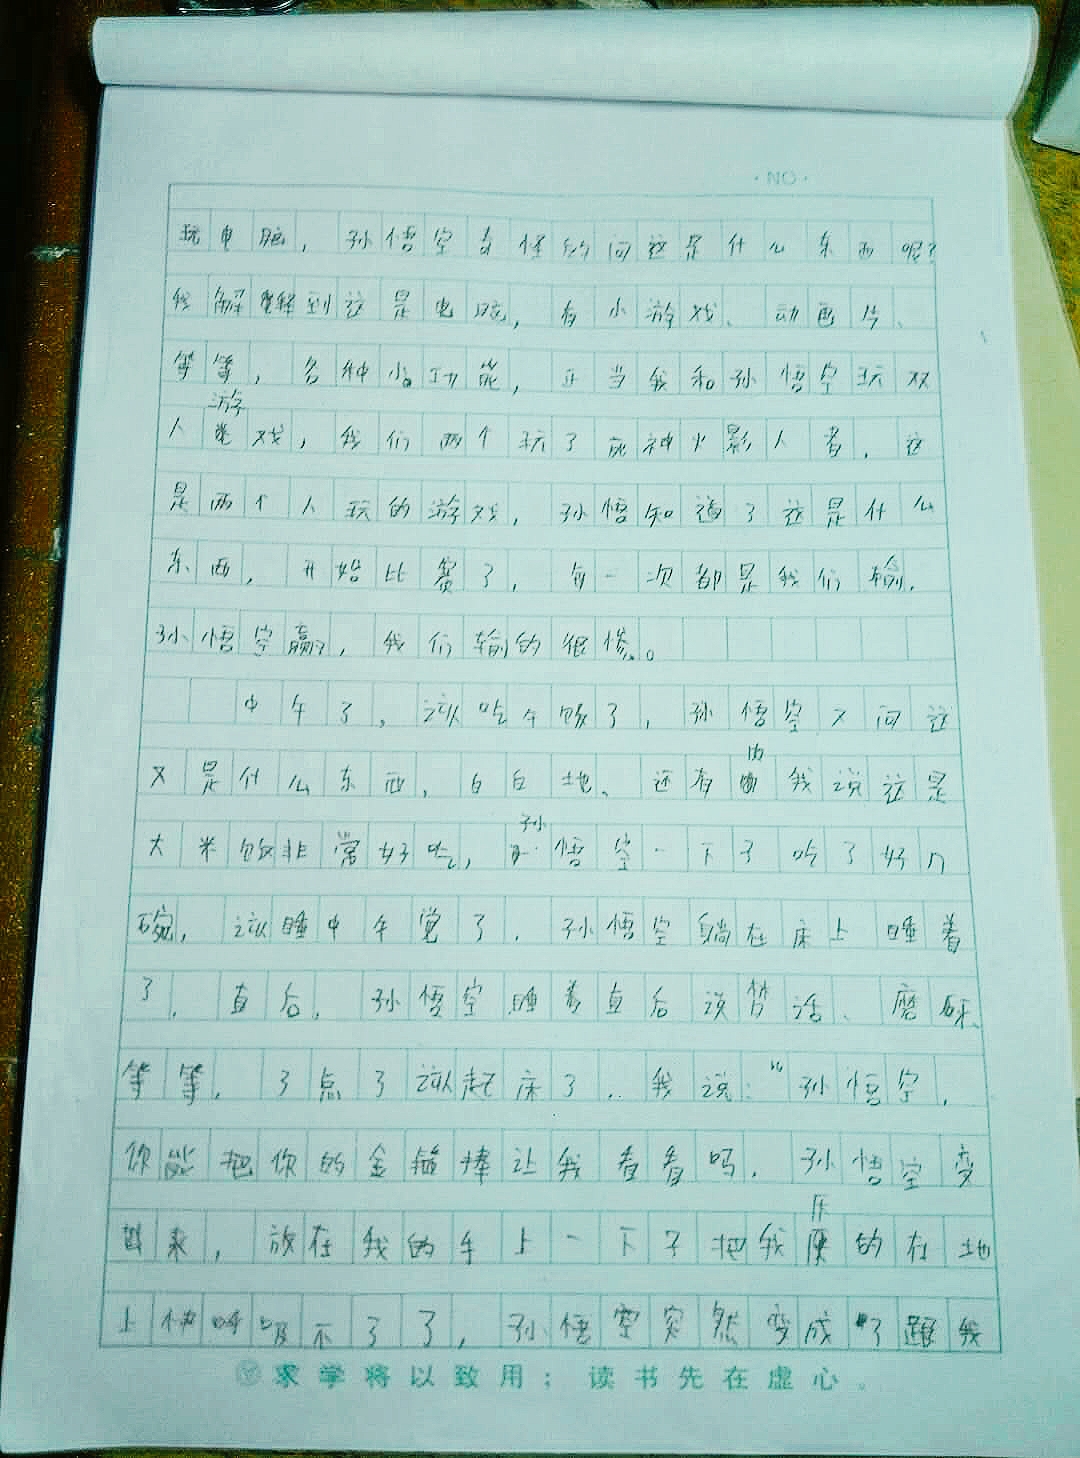 ·NO·
玩电脑，孙悟空奇怪的问这是什么东西呢？
我解释到这是电脑，有小游戏、动画片、
等等，各种小功能，正当我和孙悟空玩双
人游戏，我们两个玩了死神火影人者，这
是两个人玩的游戏，孙悟知道了这是什么
东西，开始比赛了，每一次都是我们输，
孙悟空赢，我们输的很惨。
中午了，该吃午饭了，孙悟空又问这
又是什么东西，白白地、还有肉我说这是
大米饭非常好吃，孙悟空一下子吃了好几
碗，该睡中午觉了，孙悟空躺在床上睡着
了，直后，孙悟空睡着直后说梦话、磨砑、
等等，了点了该起床了，我说：“孙悟空，
你能把你的金箍棒让我看看吗，孙悟空变
出来，放在我的手上一下子把我压的在地
上快呼吸不了了，孙悟空突然变成了跟我
求学将以致用；读书先在虚心。